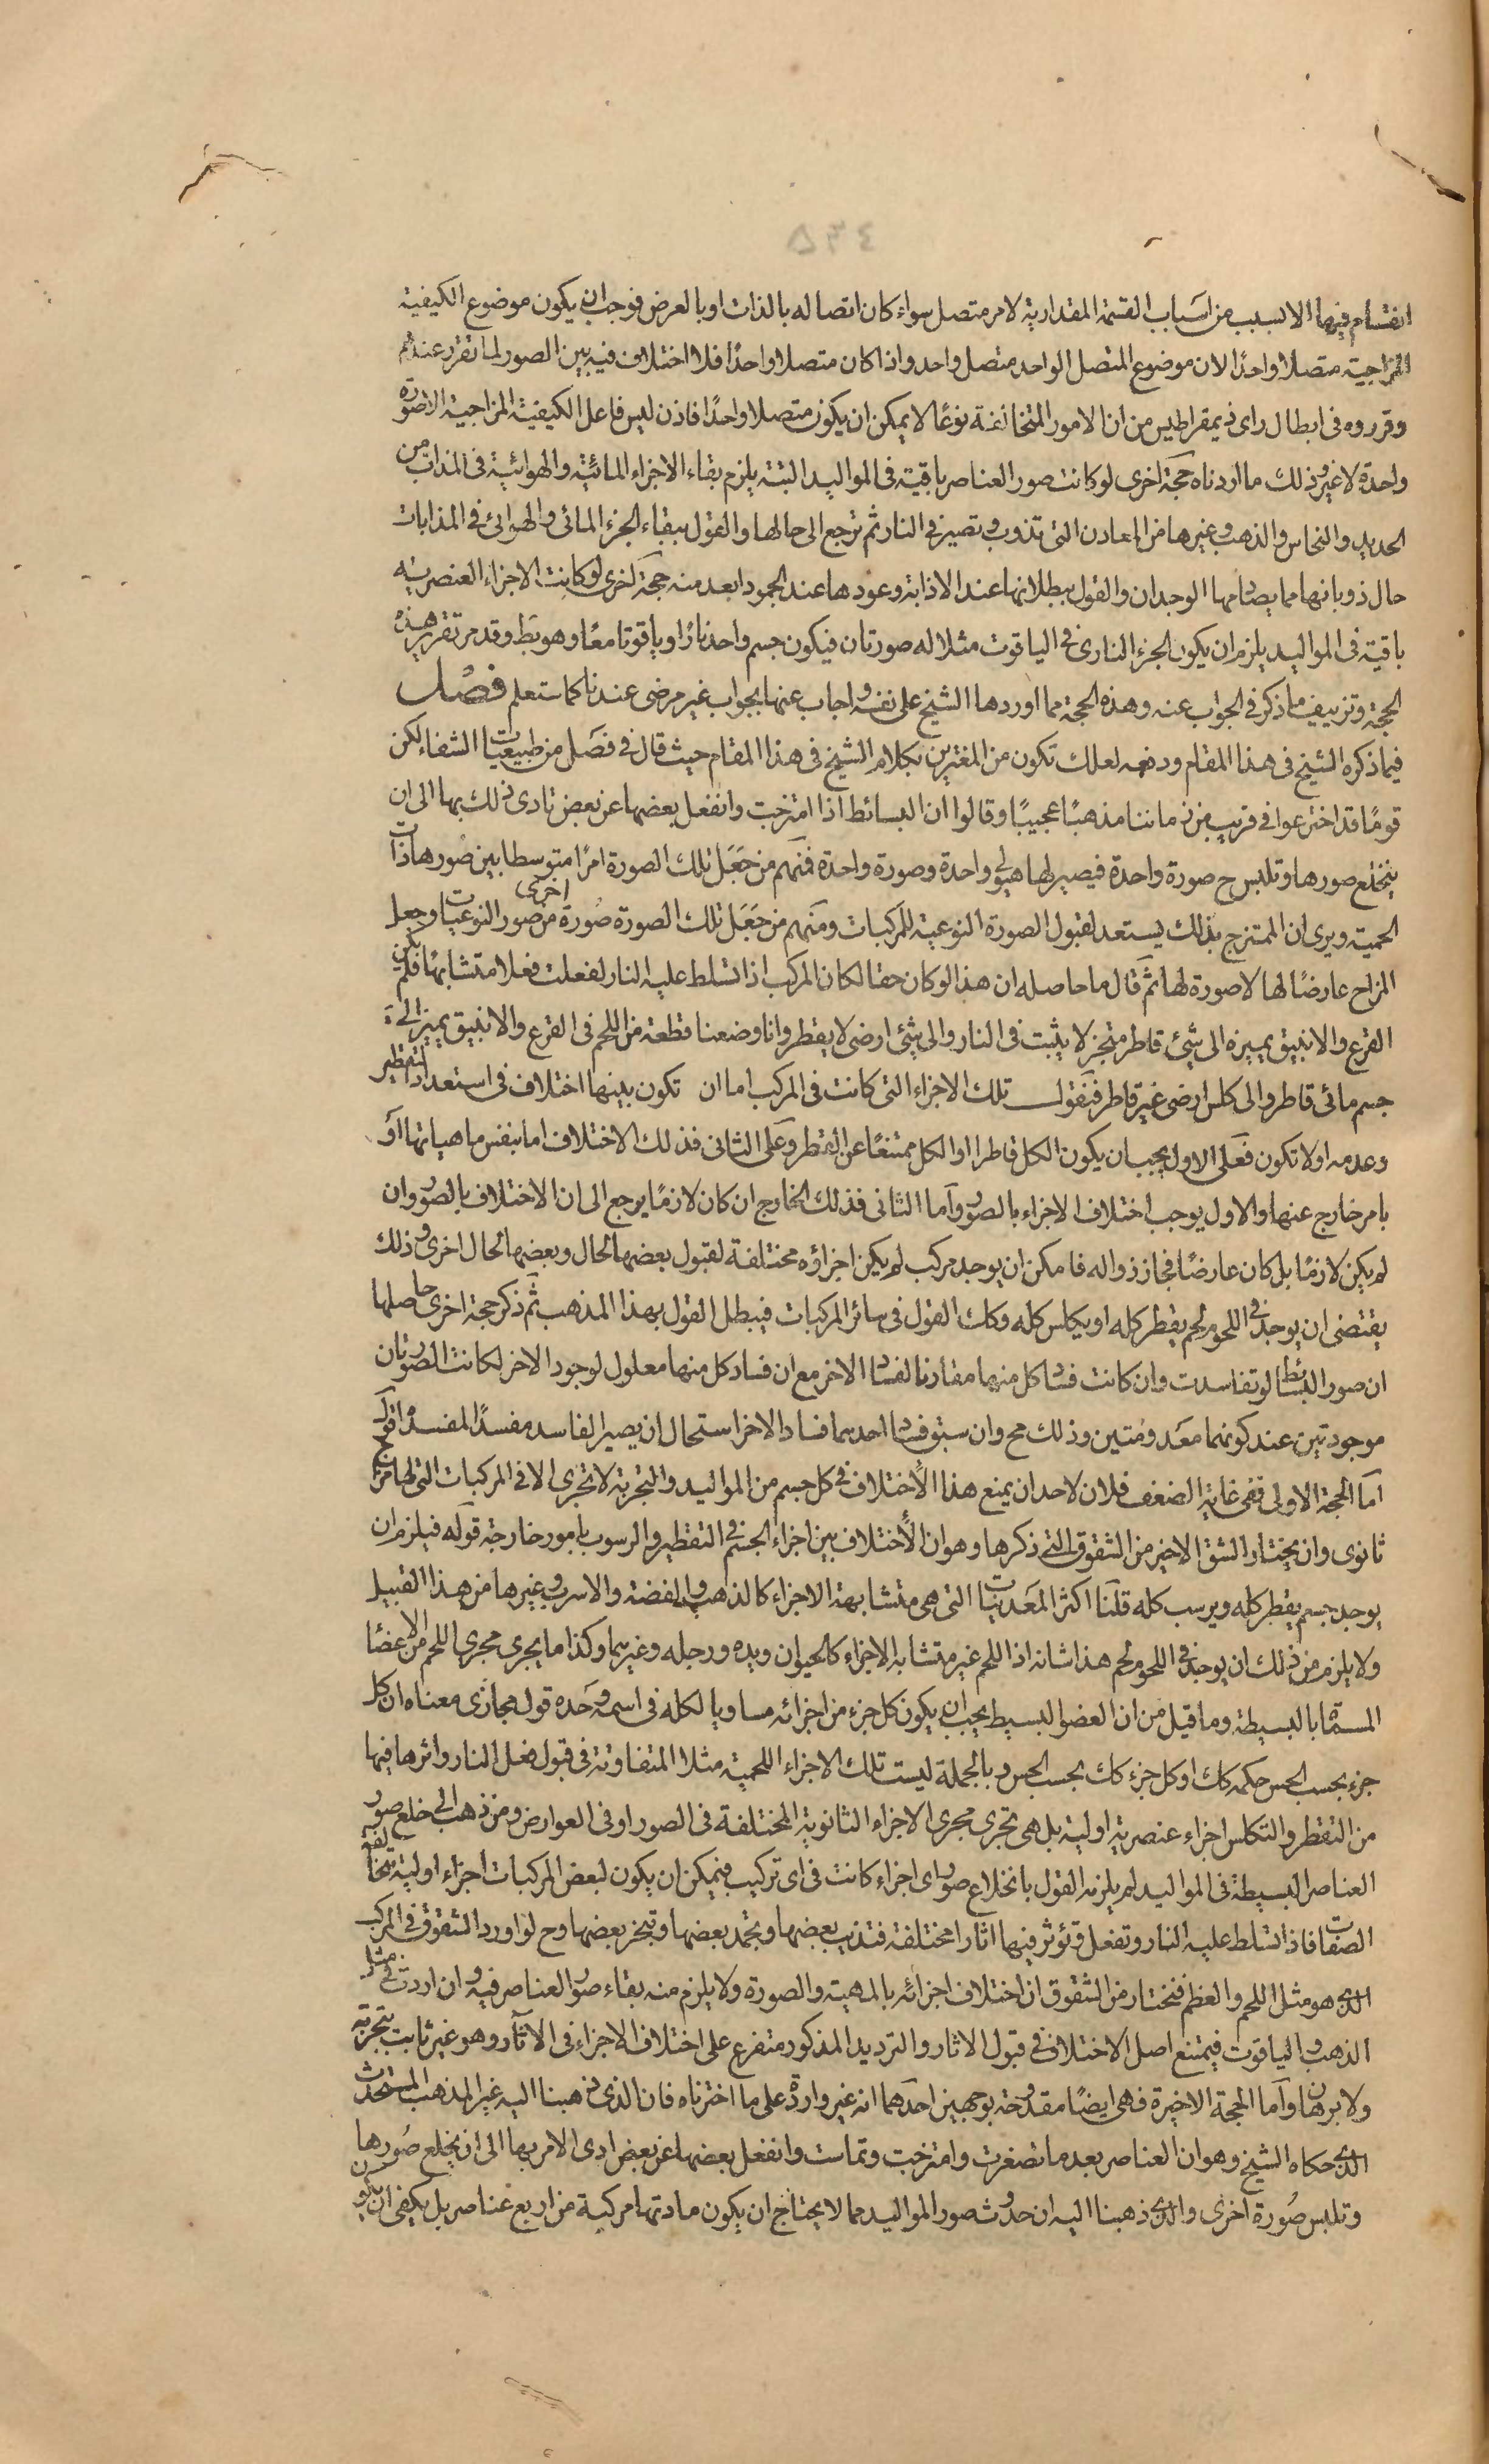 ٥٣٤
انقسام فيها الا بسبب من اسباب القسمة المقدارية لامر متصل سواء كان اتصاله بالذات او بالعرض فوجب ان يكون موضوع الكيفية
المزاجية متصلا واحدًا لان موضوع المتصل الواحد متصل واحد واذا كان متصلا واحدًا فلا اختلاف فيه بين الصور لما تقرر عندهم
وقرروه فى ابطال راى ذيمقراطيس من ان الامور المتخالفة نوعًا لا يمكن ان يكون متصلا واحدًا فاذن ليس فاعل الكيفية المزاجية الا صورة
واحدة لا غير وذلك ما اردناه حجة اخرى لو كانت صور العناصر باقية فى المواليد البتة يلزم بقاء الاجزاء المائية والهوائية فى المذاب من
الحديد والنحاس والذهب وغيرها من المعادن التى تذوب وتصير فى النار ثم ترجع الى حالها والقول ببقاء الجزء المائى والهوائى فى المذابات
حال ذوبانها مما يصادمها الوجدان والقول ببطلانها عند الاذابة وعودها عند الجمود ابعد منه حجة اخرى لو كانت الاجزاء العنصرية
باقية فى المواليد يلزم ان يكون الجزء النارى فى الياقوت مثلا له صورتان فيكون جسم واحد نارًا وياقوتا معًا وهو بط وقد مر تقرير هذه
الحجة وتزييف ما ذكر فى الجواب عنه وهذه الحجة مما اوردها الشيخ على نفسه واجاب عنها بجواب غير مرضى عندنا كما ستعلم فصل
فيما ذكره الشيخ فى هذا المقام ودفعه لعلك تكون من المغترين بكلام الشيخ فى هذا المقام حيث قال فى فصل من طبيعيات الشفاء لكن
قومًا قد اخترعوا فى قريب من زماننا مذهبًا عجيبًا وقالوا ان البسائط اذا امتزجت وانفعل بعضها عن بعض تادى ذلك بها الى ان
ينخلع صورها وتلبس ح صورة واحدة فيصير لها هيولى واحدة وصورة واحدة فمنهم من جعل تلك الصورة امرًا متوسطا بين صورها ذات
الحمية ويرى ان الممتزج بذلك يستعد لقبول الصورة النوعية للمركبات ومنهم من جعل تلك الصورة صورة اخرى من صور النوعيات وجعل
المزاج عارضًا لها لا صورة لها ثم قال ما حاصله ان هذا لو كان حقا لكان المركب اذا تسلط عليه النار لفعلت فعلا متشابها فلم يكن
القرع والانبيق يميزه الى شئ قاطر متبخر لا يثبت فى النار والى شئ ارضى لا يقطر وانا وضعنا قطعة من اللحم فى القرع والانبيق يميز الى
جسم مائى قاطر والى كلس ارضى غير قاطر فنقول تلك الاجزاء التى كانت فى المركب اما ان تكون بينها اختلاف فى استعداد التقطير
وعدمه اولا تكون فعلى الاول يجب ان يكون الكل قاطرا او الكل ممتنعًا عن القطر وعلى الثانى فذلك الاختلاف اما بنفس ماهياتها او
بامر خارج عنها والاول يوجب اختلاف الاجزاء بالصور واما الثانى فذلك الخارج ان كان لازمًا يرجع الى ان الاختلاف بالصور وان
لم يكن لازمًا بل كان عارضًا فجاز زواله فامكن ان يوجد مركب لم يكن اجزاؤه مختلفة لقبول بعضها لحال وبعضها لحال اخرى وذلك
يقتضى ان يوجد فى اللحوم لحم يقطر كله او يكلس كله وكك القول فى سائر المركبات فيبطل القول بهذا المذهب ثم ذكر حجة اخرى حاصلها
ان صور البسائط لو تفاسدت وان كانت فساد كل منهما مقارنا لفساد الاخر مع ان فساد كل منهما معلول لوجود الاخر لكانت الصورتان
موجودتين عند كونهما معدومتين وذلك مح وان سبق فساد احدهما فساد الاخر استحال ان يصير الفاسد مفسدًا لمفسده اقول
اما الحجة الاولى ففى غاية الضعف فلان لاحد ان يمنع هذا الاختلاف فى كل جسم من المواليد والتجربة لا تجرى الا فى المركبات التى لها مزاج
ثانوى وان يختار الشق الاخير من الشقوق التى ذكرها وهو ان الاختلاف بين اجزاء الجسم فى التقطير والرسوب بامور خارجة قوله فيلزم ان
يوجد جسم يقطر كله ويرسب كله قلنا اكثر المعدنيات التى هى متشابهة الاجزاء كالذهب والفضة والاسرب وغيرها من هذا القبيل
ولا يلزم من ذلك ان يوجد فى اللحوم لحم هذا شانه اذ اللحم غير متشابه الاجزاء كالحيوان ويده ورجله وغيرهما وكذا ما يجرى مجرى اللحم من الاعضاء
المسماة بالبسيطة وما قيل من ان العضو البسيط يجب ان يكون كل جزء من اجزائه مساويا لكله فى اسمه وحده قول مجازى معناه ان كل
جزء بحسب الحس حكمه كك او كل جزء كك بحسب الحس وبالجملة ليست تلك الاجزاء اللحمية مثلا المتفاوتة فى قبول فعل النار واثرها فيها
من التقطر والتكلس اجزاء عنصرية اولية بل هى تجرى مجرى الاجزاء الثانوية المختلفة فى الصور او فى العوارض ومن ذهب الى خلع صور
العناصر البسيطة فى المواليد لم يلزمه القول بانخلاع صور اى اجزاء كانت فى اى تركيب فيمكن ان يكون لبعض المركبات اجزاء اولية متخالفة
الصفات فاذا تسلط عليه النار وتفعل وتؤثر فيها اثارا مختلفة فتذيب بعضها وتجمد بعضها وتبخر بعضها وح لو اورد الشقوق فى المركب
الذى هو مثل اللحم والعظم فنختار من الشقوق ان اختلاف اجزائه بالمهية والصورة ولا يلزم منه بقاء صور العناصر فيه وان اردت فى مثل
الذهب والياقوت فيمتنع اصل الاختلاف فى قبول الاثار والترديد المذكور متفرع على اختلاف الاجزاء فى الآثار وهو غير ثابت بتجربة
ولا برهان واما الحجة الاخيرة فهى ايضًا مقدوحة بوجهين احدهما انه غير واردة على ما اخترناه فان الذى ذهبنا اليه غير المذهب المستحدث
الذى حكاه الشيخ وهو ان العناصر بعد ما تصغرت وامتزجت وتماست وانفعل بعضها عن بعض ادى الامر بها الى ان يخلع صورها
وتلبس صورة اخرى والذى ذهبنا اليه ان حدوث صور المواليد مما لا يحتاج ان يكون مادتها مركبة من اربع عناصر بل يكفى ان يكون